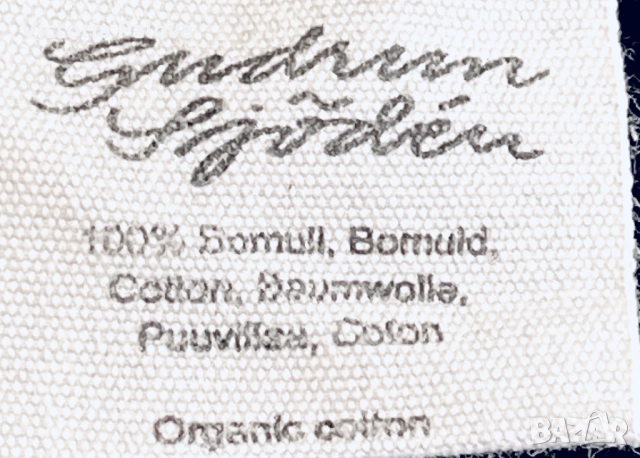 Gudrun
Sjödén
100% Bomull, Bomuld,
Cotton, Baumwolle,
Puuvillaa, Coton
Organic cotton
BAZAR